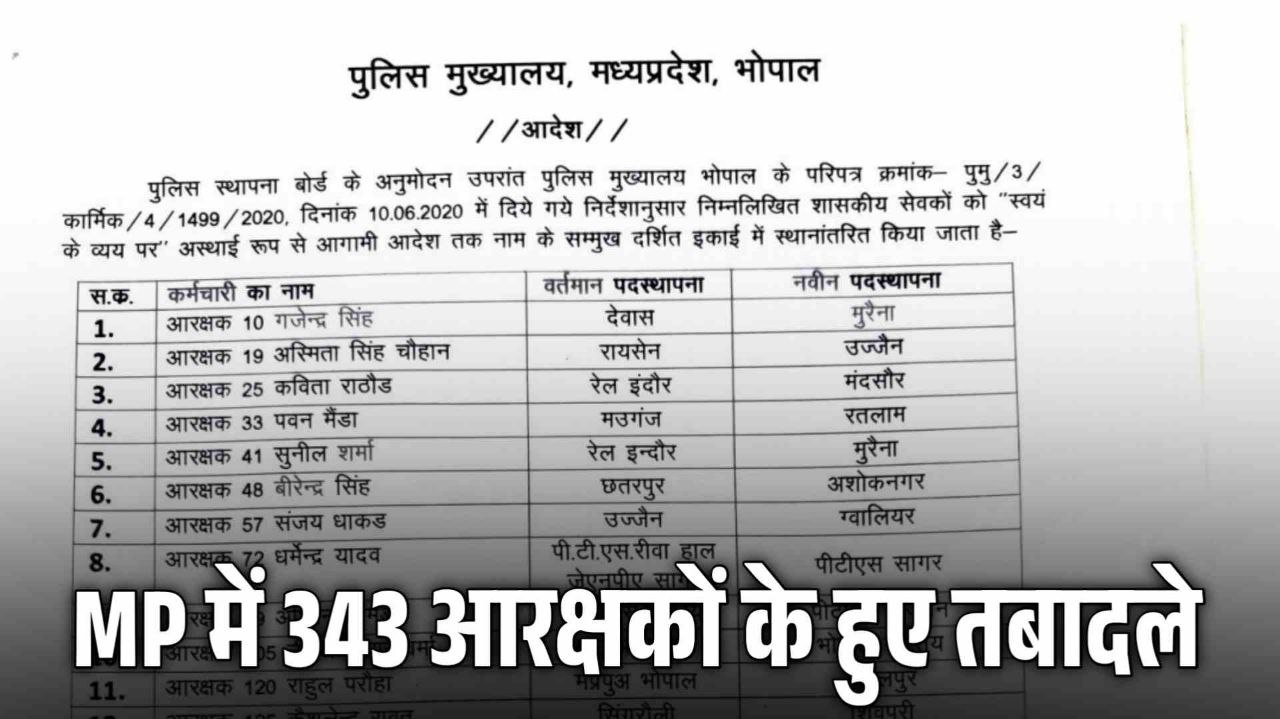 पुलिस मुख्यालय, मध्यप्रदेश, भोपाल
//आदेश//
पुलिस स्थापना बोर्ड के अनुमोदन उपरांत पुलिस मुख्यालय भोपाल के परिपत्र क्रमांक– पुमु/3/
कार्मिक/4/1499/2020, दिनांक 10.06.2020 में दिये गये निर्देशानुसार निम्नलिखित शासकीय सेवकों को "स्वयं
के व्यय पर" अस्थाई रूप से आगामी आदेश तक नाम के सम्मुख दर्शित इकाई में स्थानांतरित किया जाता है–
स.क. कर्मचारी का नाम वर्तमान पदस्थापना नवीन पदस्थापना
1. आरक्षक 10 गजेन्द्र सिंह देवास मुरैना
2. आरक्षक 19 अस्मिता सिंह चौहान रायसेन उज्जैन
3. आरक्षक 25 कविता राठौड रेल इंदौर मंदसौर
4. आरक्षक 33 पवन मैंडा मउगंज रतलाम
5. आरक्षक 41 सुनील शर्मा रेल इन्दौर मुरैना
6. आरक्षक 48 बीरेन्द्र सिंह छतरपुर अशोकनगर
7. आरक्षक 57 संजय धाकड उज्जैन ग्वालियर
8. आरक्षक 72 धर्मेन्द्र यादव पी.टी.एस.रीवा हाल पीटीएस सागर
जेएनपीए
MP में 343 आरक्षकों के हुए तबादले
11. आरक्षक 120 राहुल परौहा मप्रपुअ भोपाल
सिंगरौली शिवपुरी